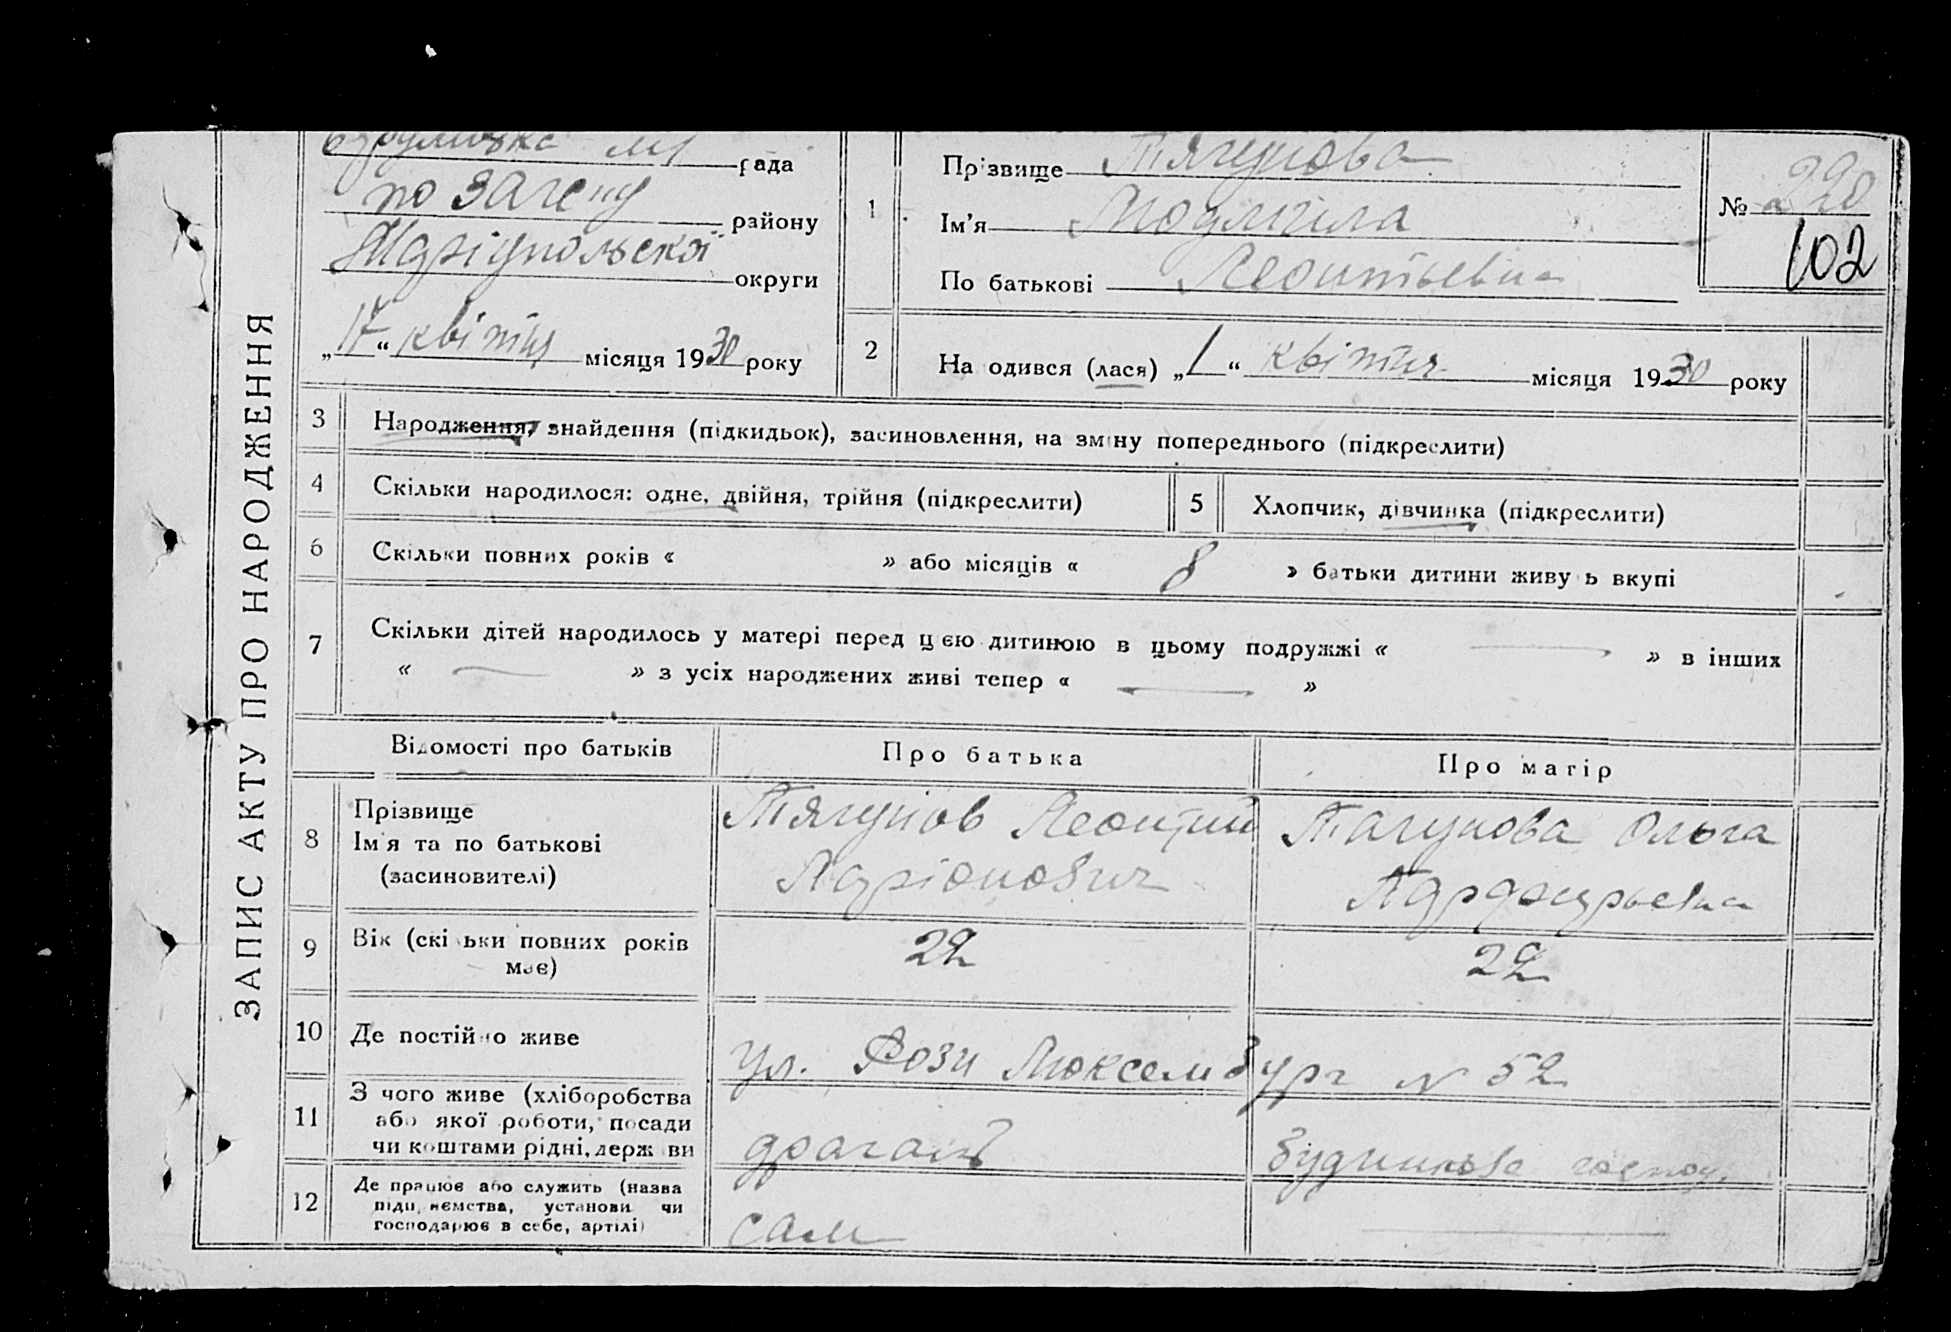 ЗАПИС АКТУ ПРО НАРОДЖЕННЯ
рада
по ЗАГСну району
Маріупольскої округи
„17“ квітня місяця 1930 року
1
Прізвище Тягунова
Ім'я Людмила
По батькові Леонтьевна
№ 220
102
2
На одився (лася) „1“ квітня місяця 1930 року
3
Народження, знайдення (підкидьок), засиновлення, на зміну попереднього (підкреслити)
4
Скільки народилося: одне, двійня, трійня (підкреслити)
5
Хлопчик, дівчинка (підкреслити)
6
Скільки повних років « » або місяців « 8 » батьки дитини живу ь вкупі
7
Скільки дітей народилось у матері перед цією дитиною в цьому подружжі « — » в інших
« — » з усіх народжених живі тепер « — »
Відомості про батьків
Про батька
Про матір
8
Прізвище
Ім'я та по батькові
(засиновителі)
Тягунов Леонтий
Адріонович
Тагунова Ольга
9
Вік (скі ьки повних років
має)
22
22
10
Де постійно живе
ул. Рози Люксембург N 52
11
З чого живе (хліборобства
або якої роботи, посади
чи коштами рідні, держ ви
драгаль
будинкова господ.
12
Де працює або служить (назва
підприємства, установи чи
господарює в себе, артілі)
сам
—